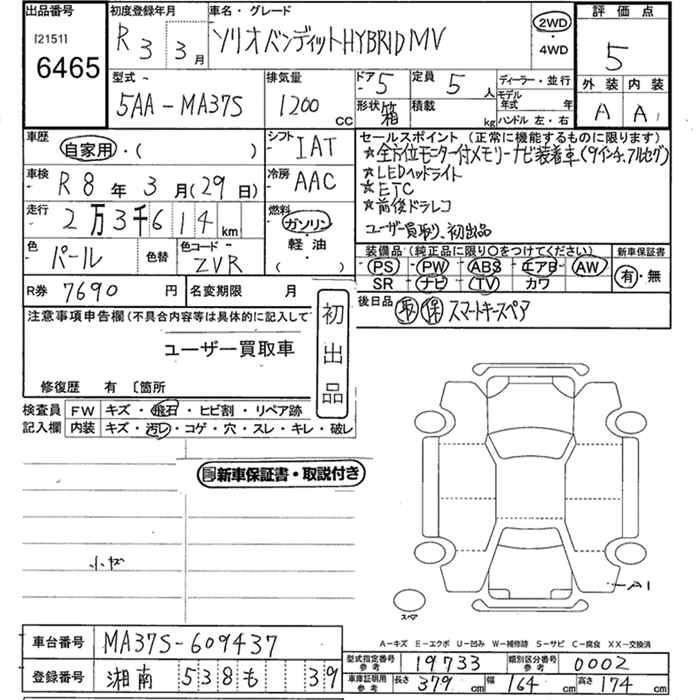 出品番号 初度登録年月 車名・グレード 評価点
121511
6465
R 3 3月 ソリオバンディットHYBRID MV 2WD・4WD 5
型式 排気量 ドア 5 定員 5人 ディーラー・並行 外装 内装
5AA-MA37S 1200cc 形状 箱 積載 kg モデル年式 年 A A
ハンドル 左・右
車歴 自家用・( ) シフト IAT セールスポイント(正常に機能するものに限ります)
☆全方位モニター付メモリーナビ装着車(9インチ、フルセグ)
車検 R8年3月(29日) 冷房 AAC ☆LEDヘッドライト
☆ETC
走行 2万3千614km 燃料 ガソリン・軽油・( ) ☆前後ドラレコ
ユーザー買取り、初出品
色 パール 色替 色コード ZVR 装備品(純正品に限り○をつけてください) 新車保証書
PS・PW・ABS・エアB・AW 有・無
SR ナビ・TV・カワ
R券 7690円 名変期限 月
後日品 取 保 スマートキースペア
注意事項申告欄(不具合内容等は具体的に記入して 初出品
ユーザー買取車
修復歴 有 〔箇所
検査員記入欄 FW キズ・飛石・ヒビ割・リペア跡
内装 キズ・汚レ・コゲ・穴・スレ・キレ・破レ
新車保証書・取説付き
小キズ
A1
スペア
A-キズ E-エクボ U-凹み W-補修跡 S-サビ C-腐食 XX-交換済
車台番号 MA37S-609437
型式指定番号 参考 19733 類別区分番号 参考 0002
登録番号 湘南 538 も 39
車庫証明用 参考 長さ 379cm 幅 164cm 高さ 174cm